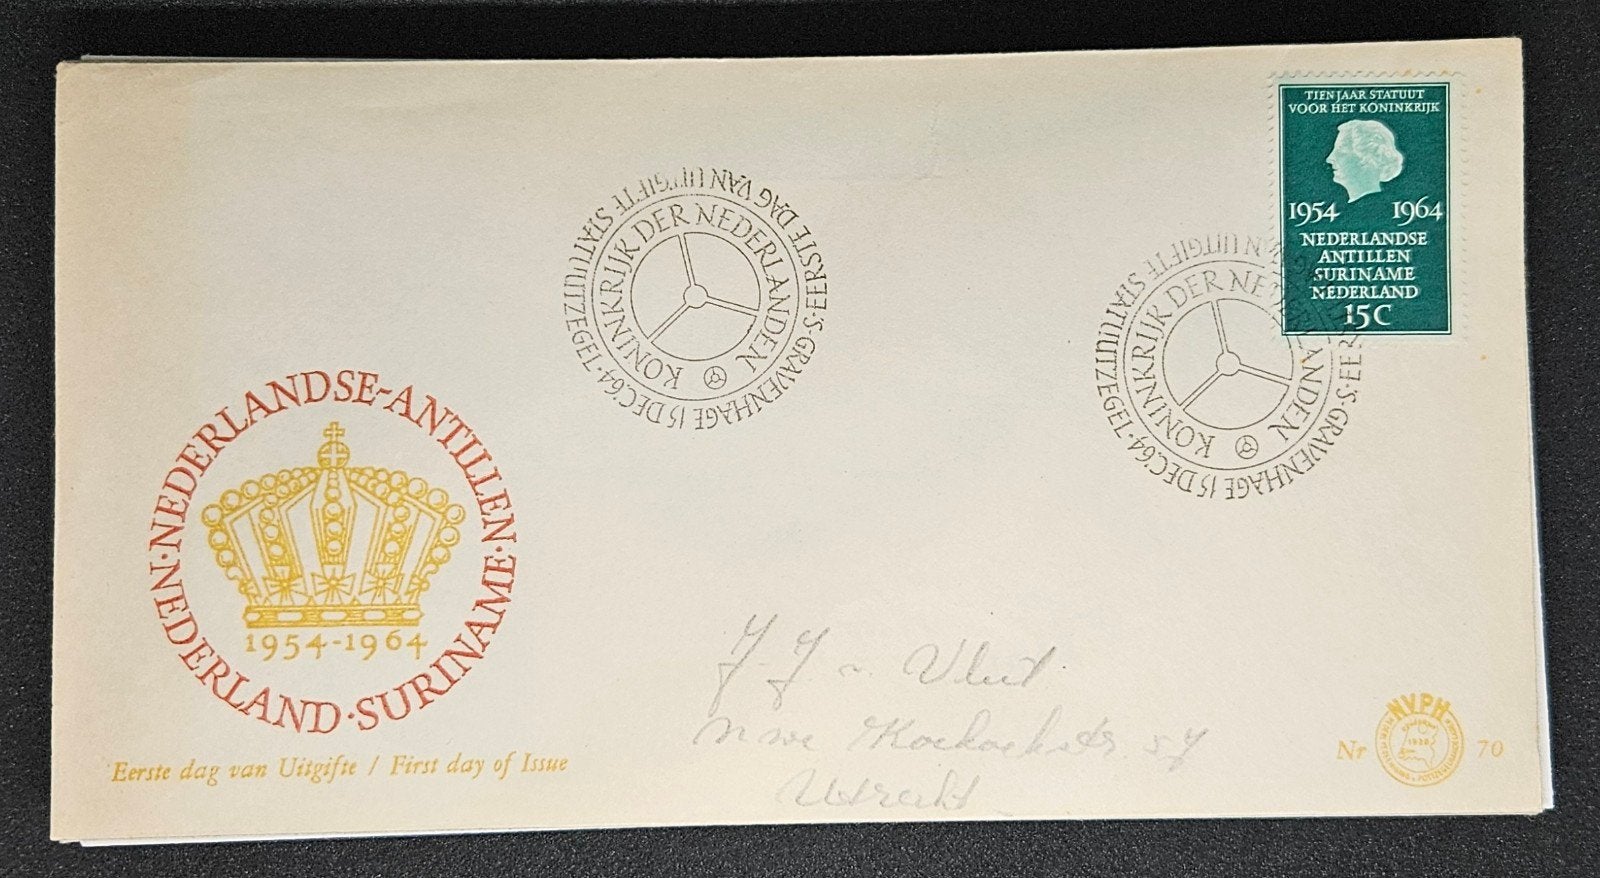 TIEN JAAR STATUUT
VOOR HET KONINKRIJK
1954 1964
NEDERLANDSE
ANTILLEN
SURINAME
NEDERLAND
15C
'S-GRAVENHAGE 15 DEC.'64 · STATUUTZEGEL · EERSTE DAG VAN UITGIFTE
KONINKRIJK DER NEDERLANDEN
'S-GRAVENHAGE 15 DEC.'64 · STATUUTZEGEL · EERSTE DAG VAN UITGIFTE
KONINKRIJK DER NEDERLANDEN
NEDERLANDSE-ANTILLEN · SURINAME · NEDERLAND · EEN ·
1954-1964
Eerste dag van Uitgifte / First day of Issue
J. J. v. Vliet
Utrecht
Nr NVPH 70